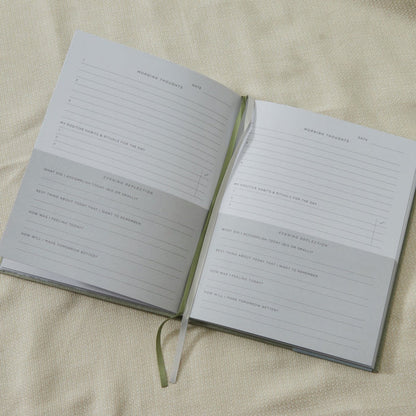 MORNING THOUGHTS
DATE
MY POSITIVE HABITS & RITUALS FOR THE DAY
EVENING REFLECTION
WHAT DID I ACCOMPLISH TODAY (BIG OR SMALL)?
BEST THING ABOUT TODAY THAT I WANT TO REMEMBER
HOW AM I FEELING TODAY?
HOW WILL I MAKE TOMORROW BETTER?
MORNING THOUGHTS
DATE
MY POSITIVE HABITS & RITUALS FOR THE DAY
EVENING REFLECTION
WHAT DID I ACCOMPLISH TODAY (BIG OR SMALL)?
BEST THING ABOUT TODAY THAT I WANT TO REMEMBER
HOW AM I FEELING TODAY?
HOW WILL I MAKE TOMORROW BETTER?